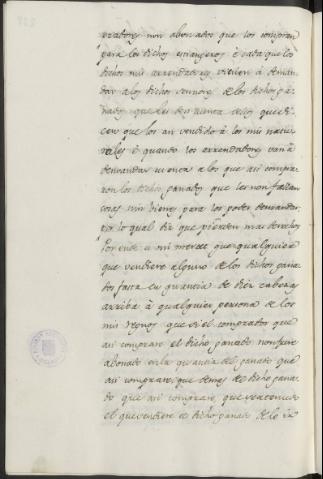 eradores non abonados que los compran
para los dichos estrangeros é cada que los
dichos mis arrendadores vienen á deman
dar a los dichos sennores de los dichos ga
nados que les den cuenta dellos que di
cen que los an vendido á los mis natu
rales é quando los arrendadores van á
demandar cuenta a los que asi compra
ron los dichos ganados que les non fallan
cosas nin bienes para los poder demandar
por lo qual diz que pierden mas derechos
Por ende es mi merced que qualquiera
que vendiere alguno de los dichos gana
dos fasta en quantia de diez cabezas
arriba á qualquier persona de los
mis regnos que si el comprador que
asi comprare el dicho ganado non fuere
abonado en la quantia del ganado que
asi comprare, que demas de dicho gana
do que asi comprare, que sea tenudo
el que vendiere el dicho ganado de lo ir